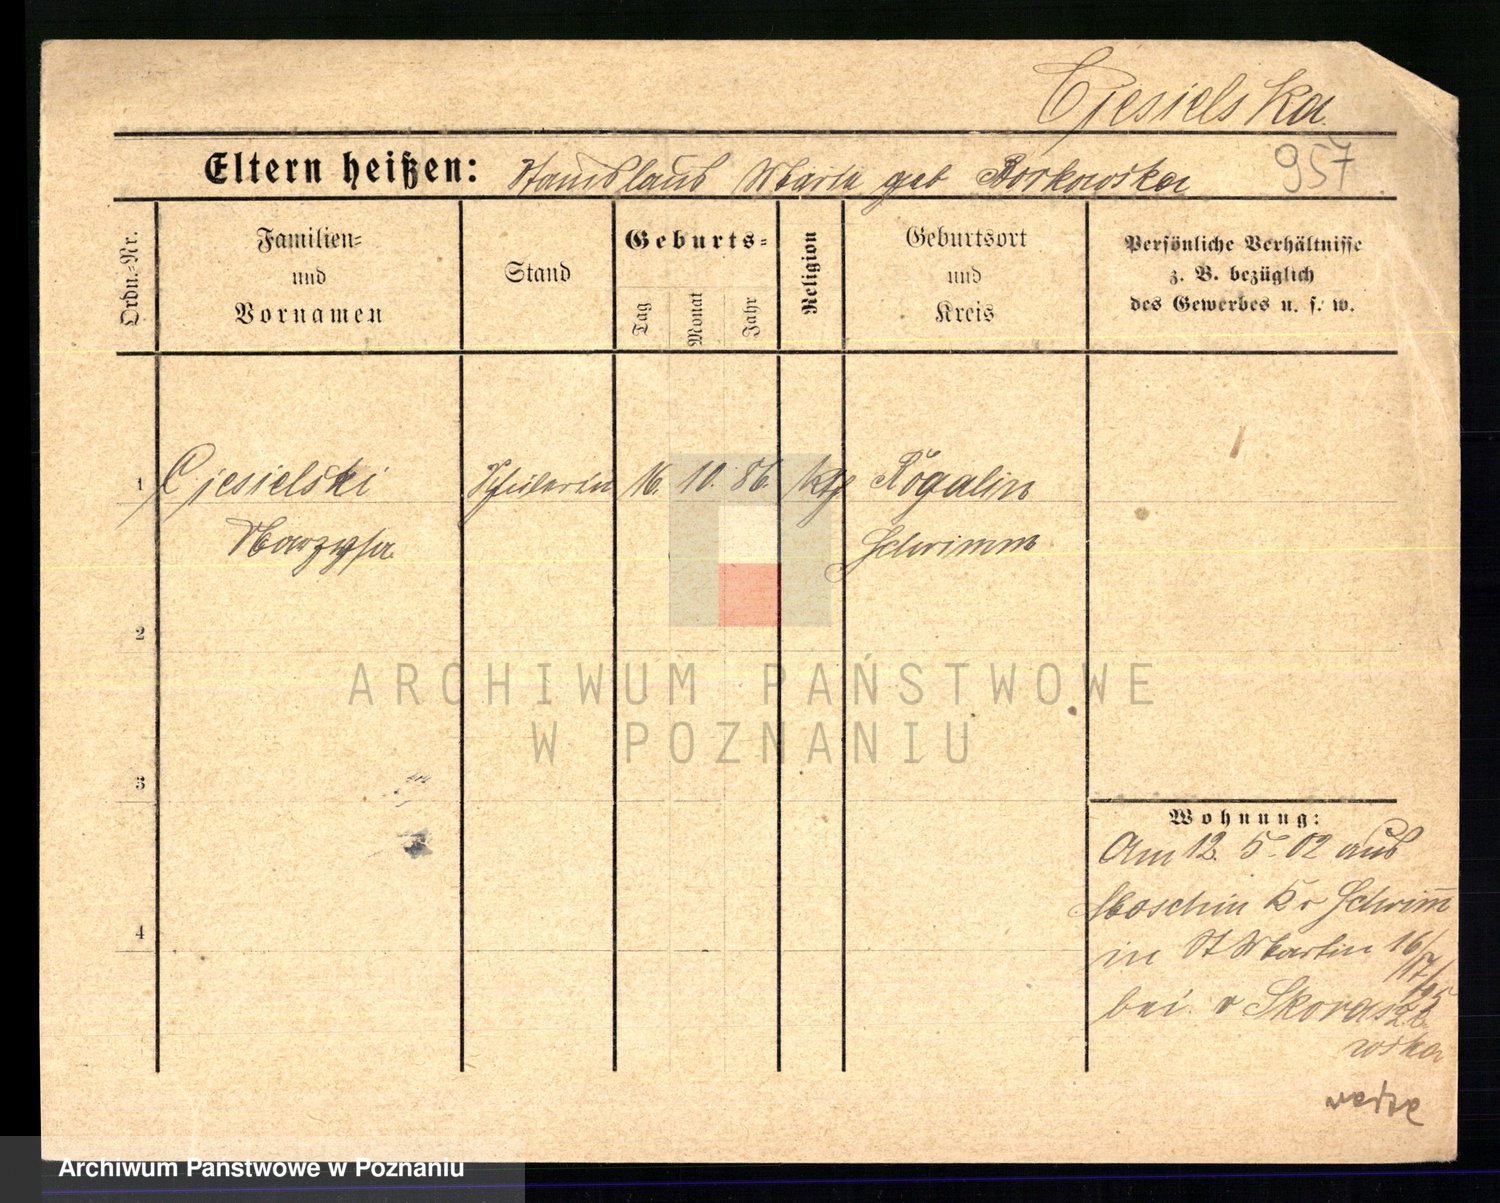 Cjesielska
957
Eltern heißen: Stanislaus Maria geb Borkowska
Ordn.-Nr.
Familien-
und
Vornamen
Stand
Geburts-
Tag
Monat
Jahr
Religion
Geburtsort
und
Kreis
Persönliche Verhältnisse
z. B. bezüglich
des Gewerbes u. s. w.
1 Cjesielski Schülerin 16. 10. 86 kth Rogalin
Schrimm
2
3
4
Wohnung:
Am 12. 5. 02 aus
Moschin Kr Schrimm
in St Martin 16/
17/
bei v Skorasze
wska
ARCHIWUM PAŃSTWOWE
W POZNANIU
Archiwum Państwowe w Poznaniu